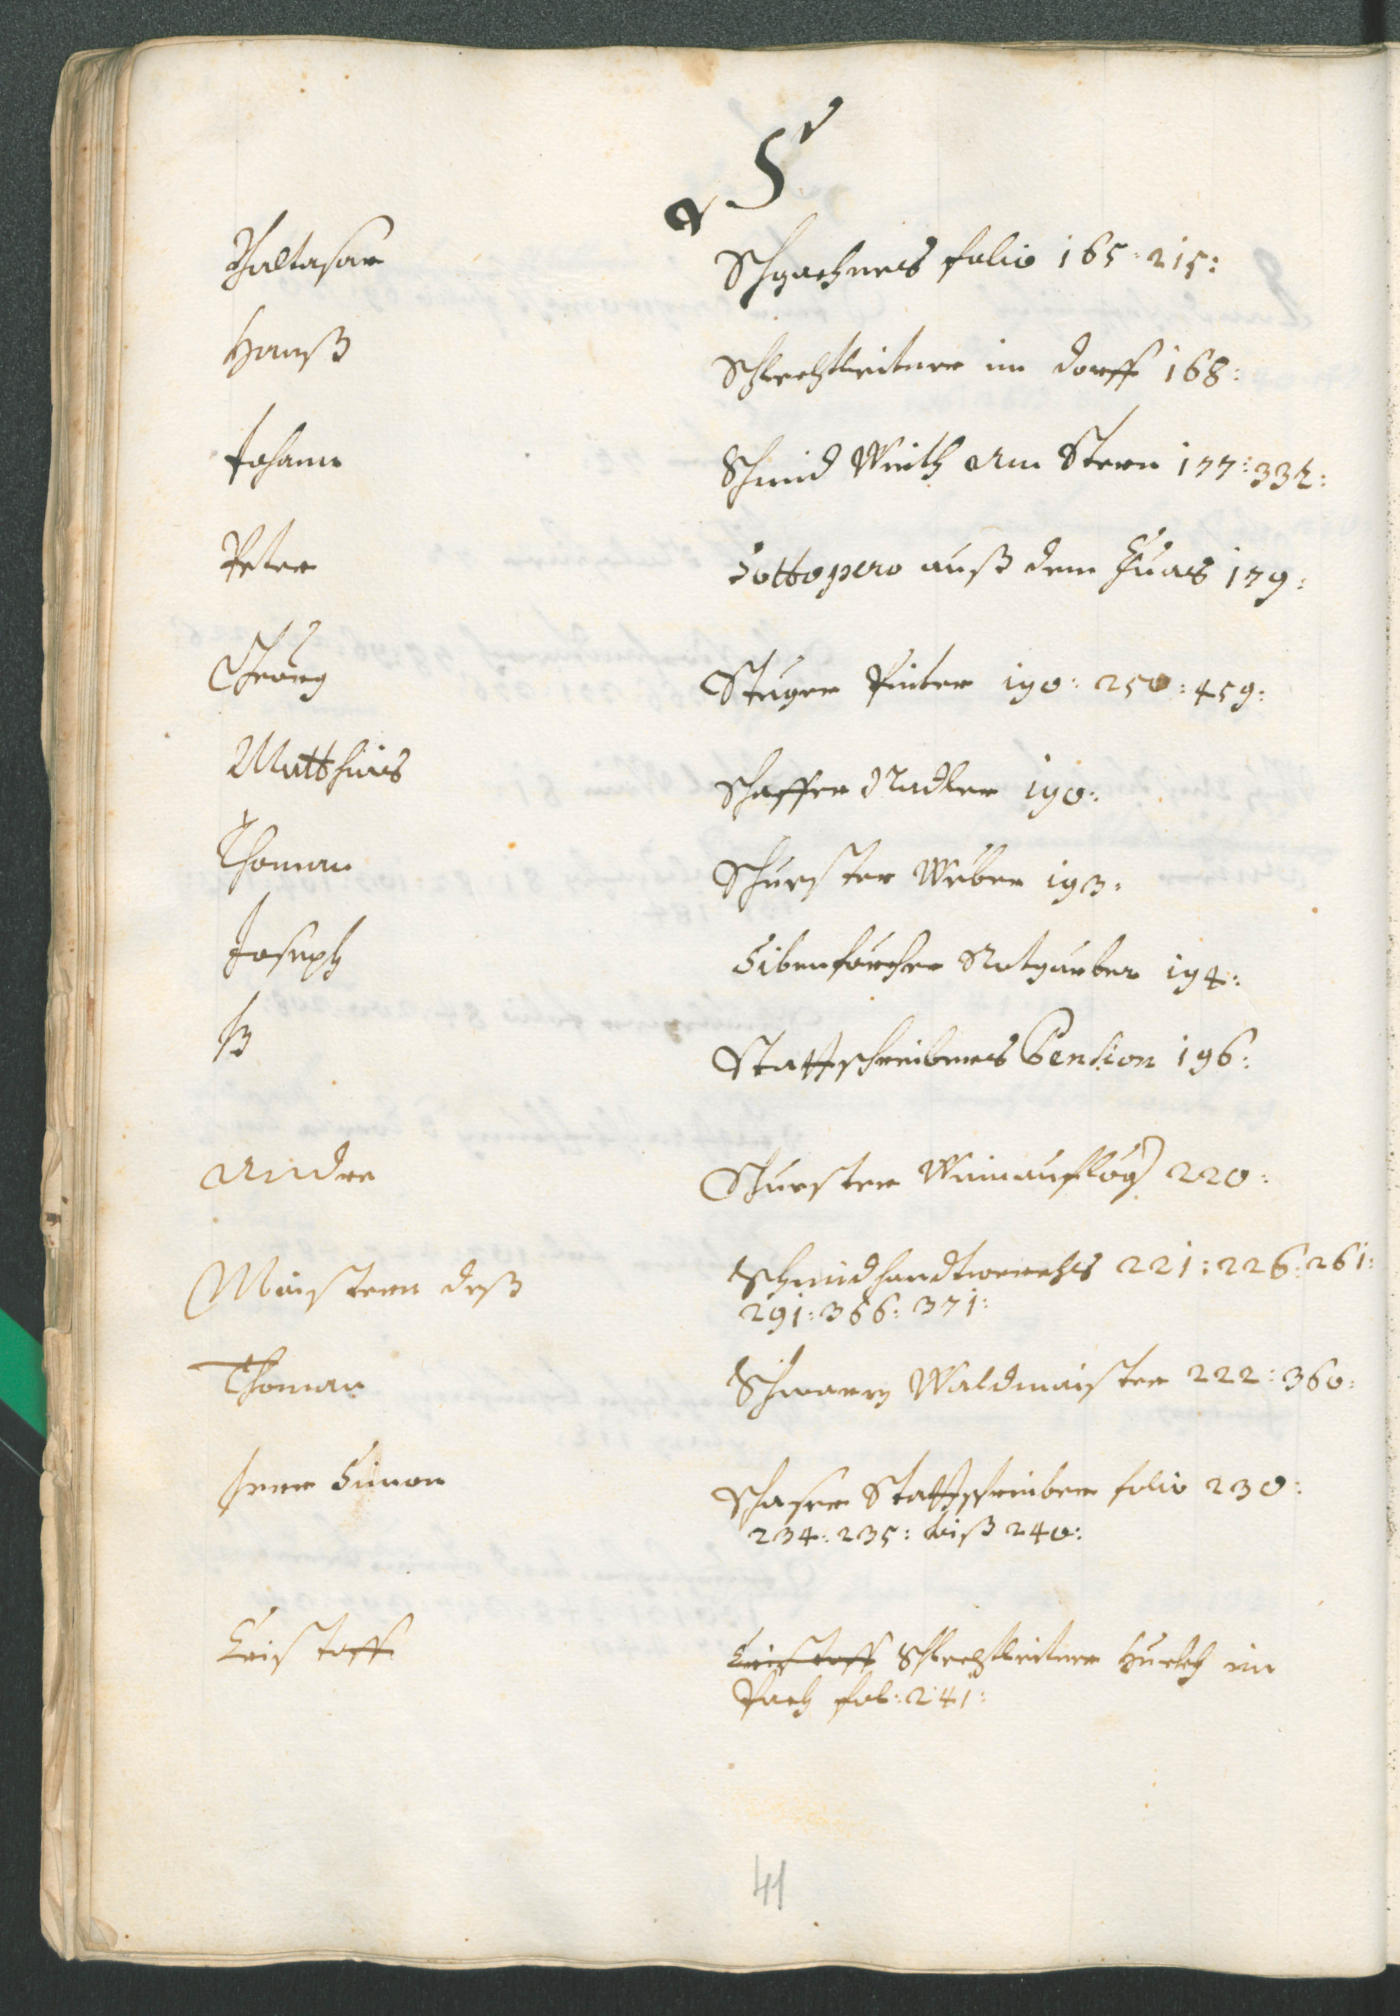 S
Balthasar Schgachners folio 165: 215:
Hanß Schlechtleitner im dorff 168:
Johann Schmid Wirth am Stern 177: 332:
Peter Sottopero auß dem 179:
Georg Steger Pinter 190: 250: 459:
Matthias Schaffer Nadler 190:
Thoman Schuester Wöber 193:
Joseph Sibenförcher Rotgärber 194:
H Stattschreibers Pension 196:
Andre Schuester Weinaufleg 220:
Maistern deß Schmidhandtwerchs 221: 226: 261:
291: 366: 371:
Thoman Schwarz Waldmaister 222: 360:
Herr Simon Schaser Stattschreiber folio 230:
234: 235: biß 240:
Cristoff Cristoff Schlechtleitner im
Pach fol: 241:
41